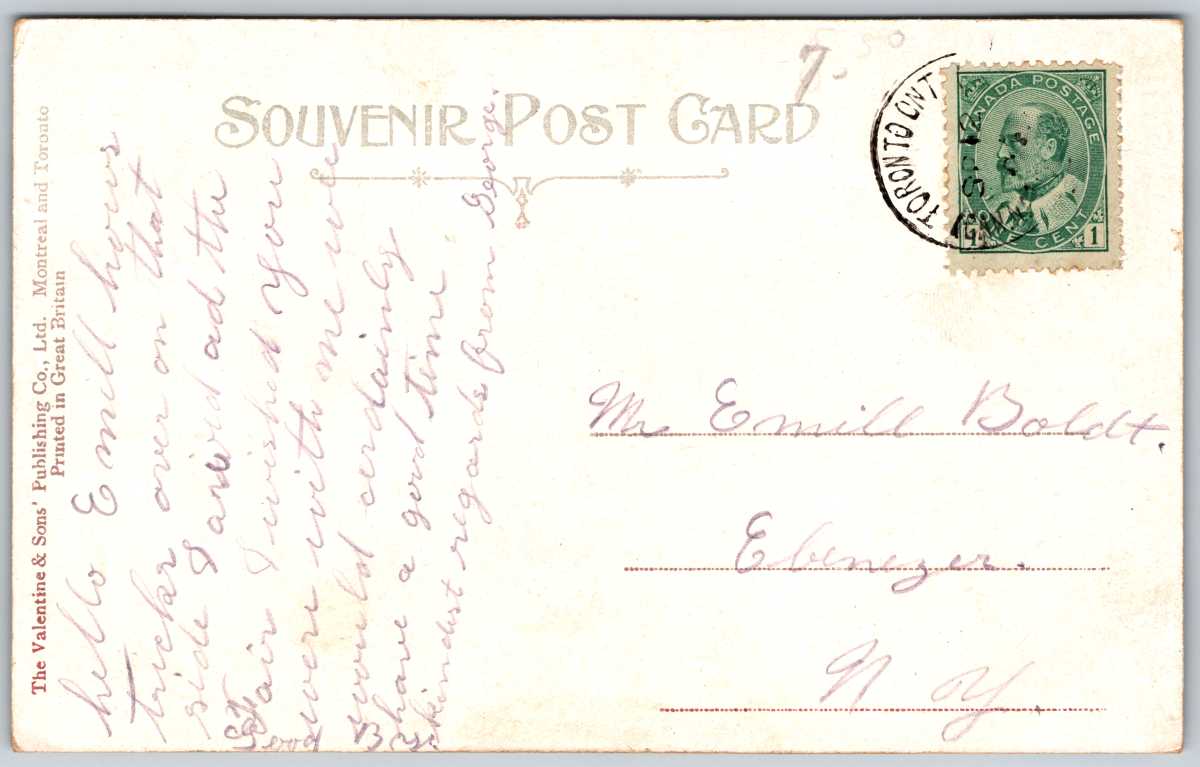 SOUVENIR POST CARD
7
TORONTO ONT
SP 12
CANADA POSTAGE
1 CENT 1
The Valentine & Sons' Publishing Co., Ltd. Montreal and Toronto
Printed in Great Britain
hello Emill hows
tricks over on that
side I and ad the
Fair I wished you
were with me we
would certainly
have a good time
kindest regards from George.
Good
By
Mr Emill Boldt.
Ebenezer.
N Y.